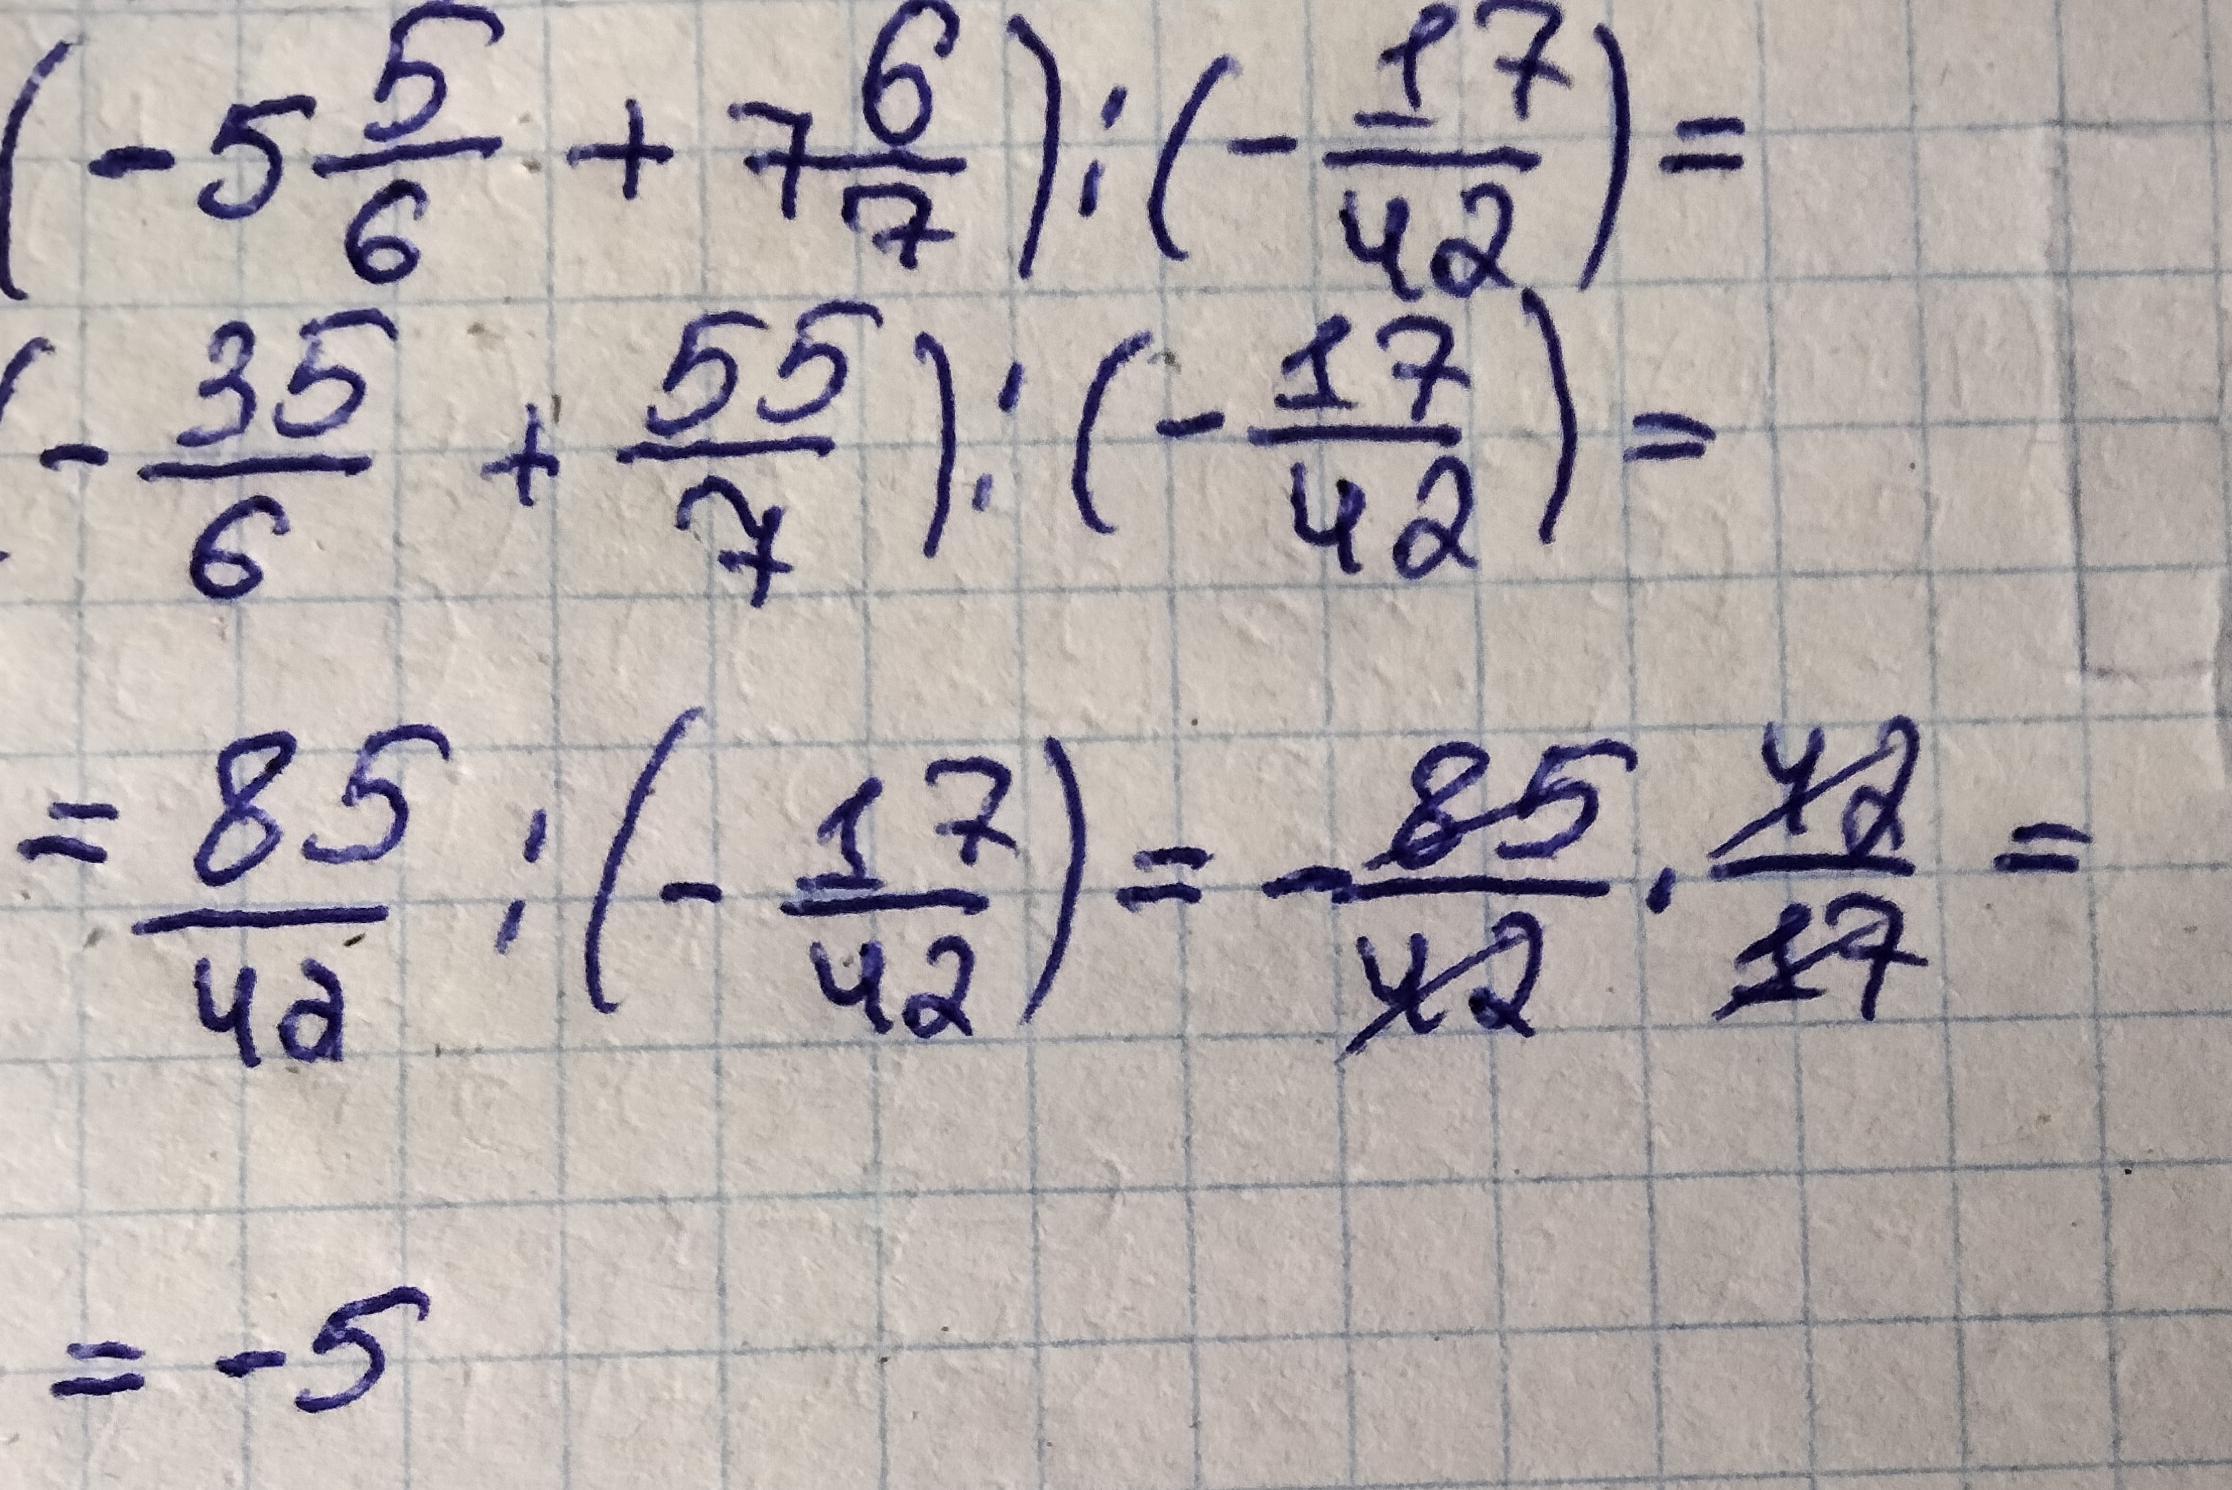 (-5 5/6 + 7 6/7) : (- 17/42) =
(- 35/6 + 55/7) : (- 17/42) =
= 85/42 : (- 17/42) = - 85/42 · 42/17 =
= -5